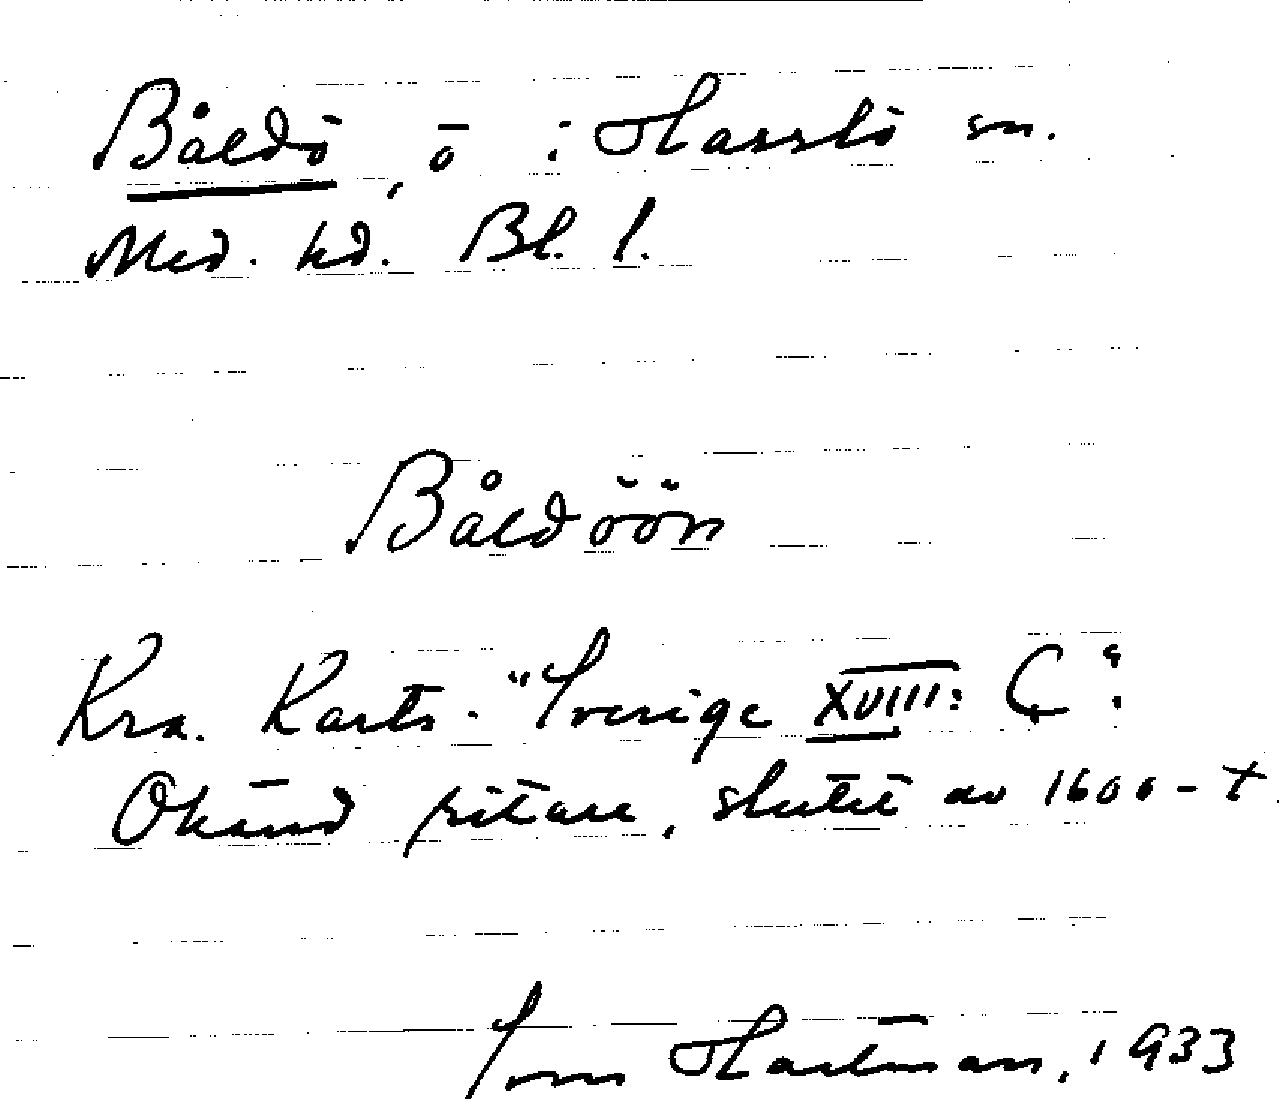 Båldö, ö i Hasslö sn.
Med. hd. Bl. l.
Båldöön
Kra. Karts. "Sverige XVIII: C".
Okänd ritare, slutet av 1600-t.
Hartman, 1933